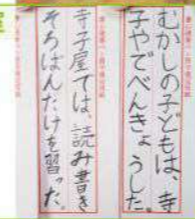 むかしの子どもは、寺
子やでべんきょうした。
寺子屋では、読み書き
そろばんだけを習った。